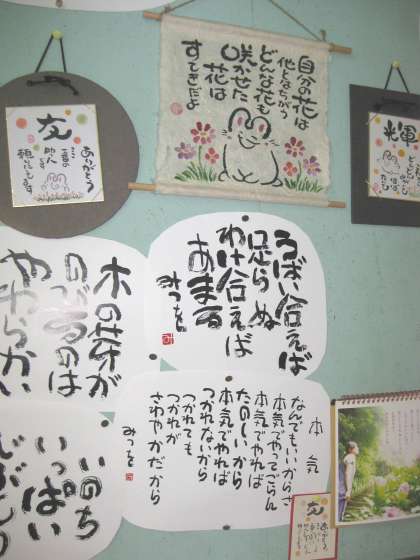 自分の花は
他とちがう
どんな花も
咲かせた
花は
すてきだよ
友
ありがとう
輝
うばい合えば
足らぬ
わけ合えば
あまる
みつを
木の芽が
のびるのは
やわらかい
本気
なんでもいいからさ
本気でやってごらん
本気でやれば
たのしいから
本気でやれば
つかれないから
つかれても
つかれが
さわやかだから
みつを
いのち
いっぱい
じぶんの
友
ありがとう